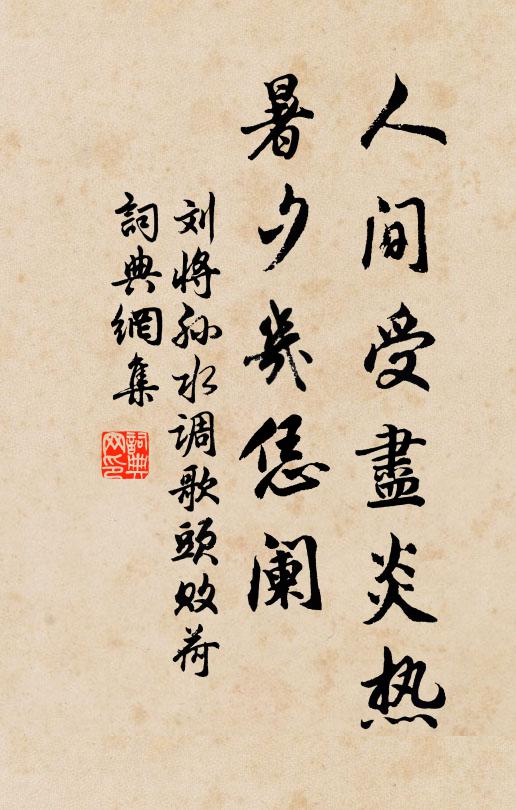 人间受盡炎热
暑夕幾凭阑
刘将孙水调歌頭败荷
詞典網集
詞典网印